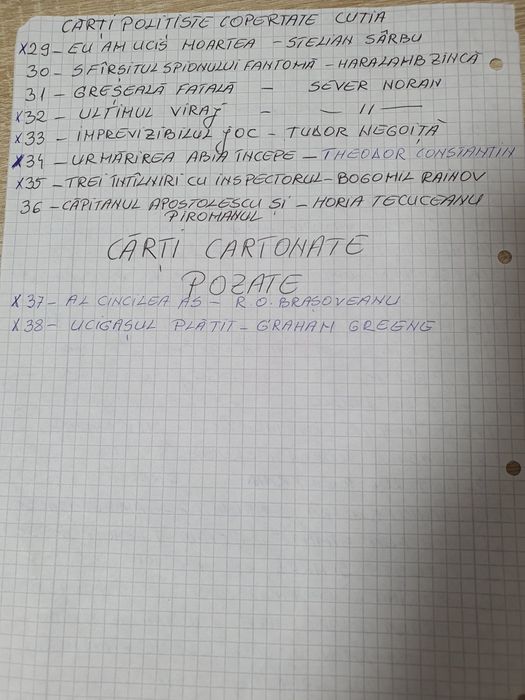 CĂRȚI POLIȚISTE COPERTATE CUTIA
X29 - EU AM UCIS MOARTEA - STELIAN SÂRBU
30 - SFÎRȘITUL SPIONULUI FANTOMĂ - HARALAMB ZINCĂ
31 - GREȘEALĂ FATALĂ - SEVER NORAN
X32 - ULTIMUL VIRAJ - — 11 —
X33 - IMPREVIZIBILUL JOC - TUDOR NEGOIȚĂ
X34 - URMĂRIREA ABIA ÎNCEPE - THEODOR CONSTANTIN
X35 - TREI ÎNTÎLNIRI CU INSPECTORUL - BOGOMIL RAINOV
36 - CĂPITANUL APOSTOLESCU ȘI - HORIA TECUCEANU
PIROMANUL
CĂRȚI CARTONATE
POZATE
X37 - AL CINCILEA AS - R.O. BRAȘOVEANU
X38 - UCIGAȘUL PLĂTIT - GRAHAM GREENE